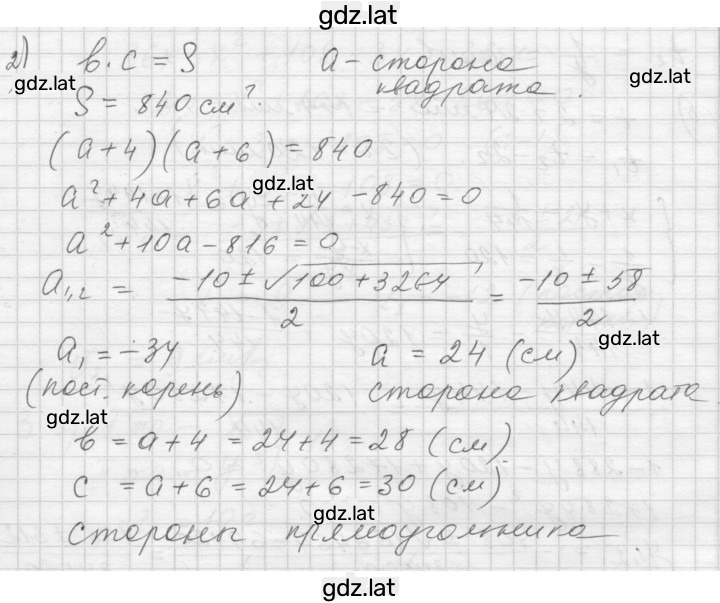 gdz.lat
2) в·с = S a - сторона
gdz.lat квадрата. gdz.lat
S = 840 см².
(a+4)(a+6) = 840
gdz.lat
a² + 4a + 6a + 24 - 840 = 0
a² + 10a - 816 = 0
a₁,₂ = (-10 ± √(100 + 3264)) / 2 = (-10 ± 58) / 2
gdz.lat gdz.lat
a₁ = -34 a = 24 (см)
(пост. корень) сторона квадрата
gdz.lat
в = a + 4 = 24 + 4 = 28 (см).
с = a + 6 = 24 + 6 = 30 (см)
gdz.lat
стороны прямоугольника
gdz.lat